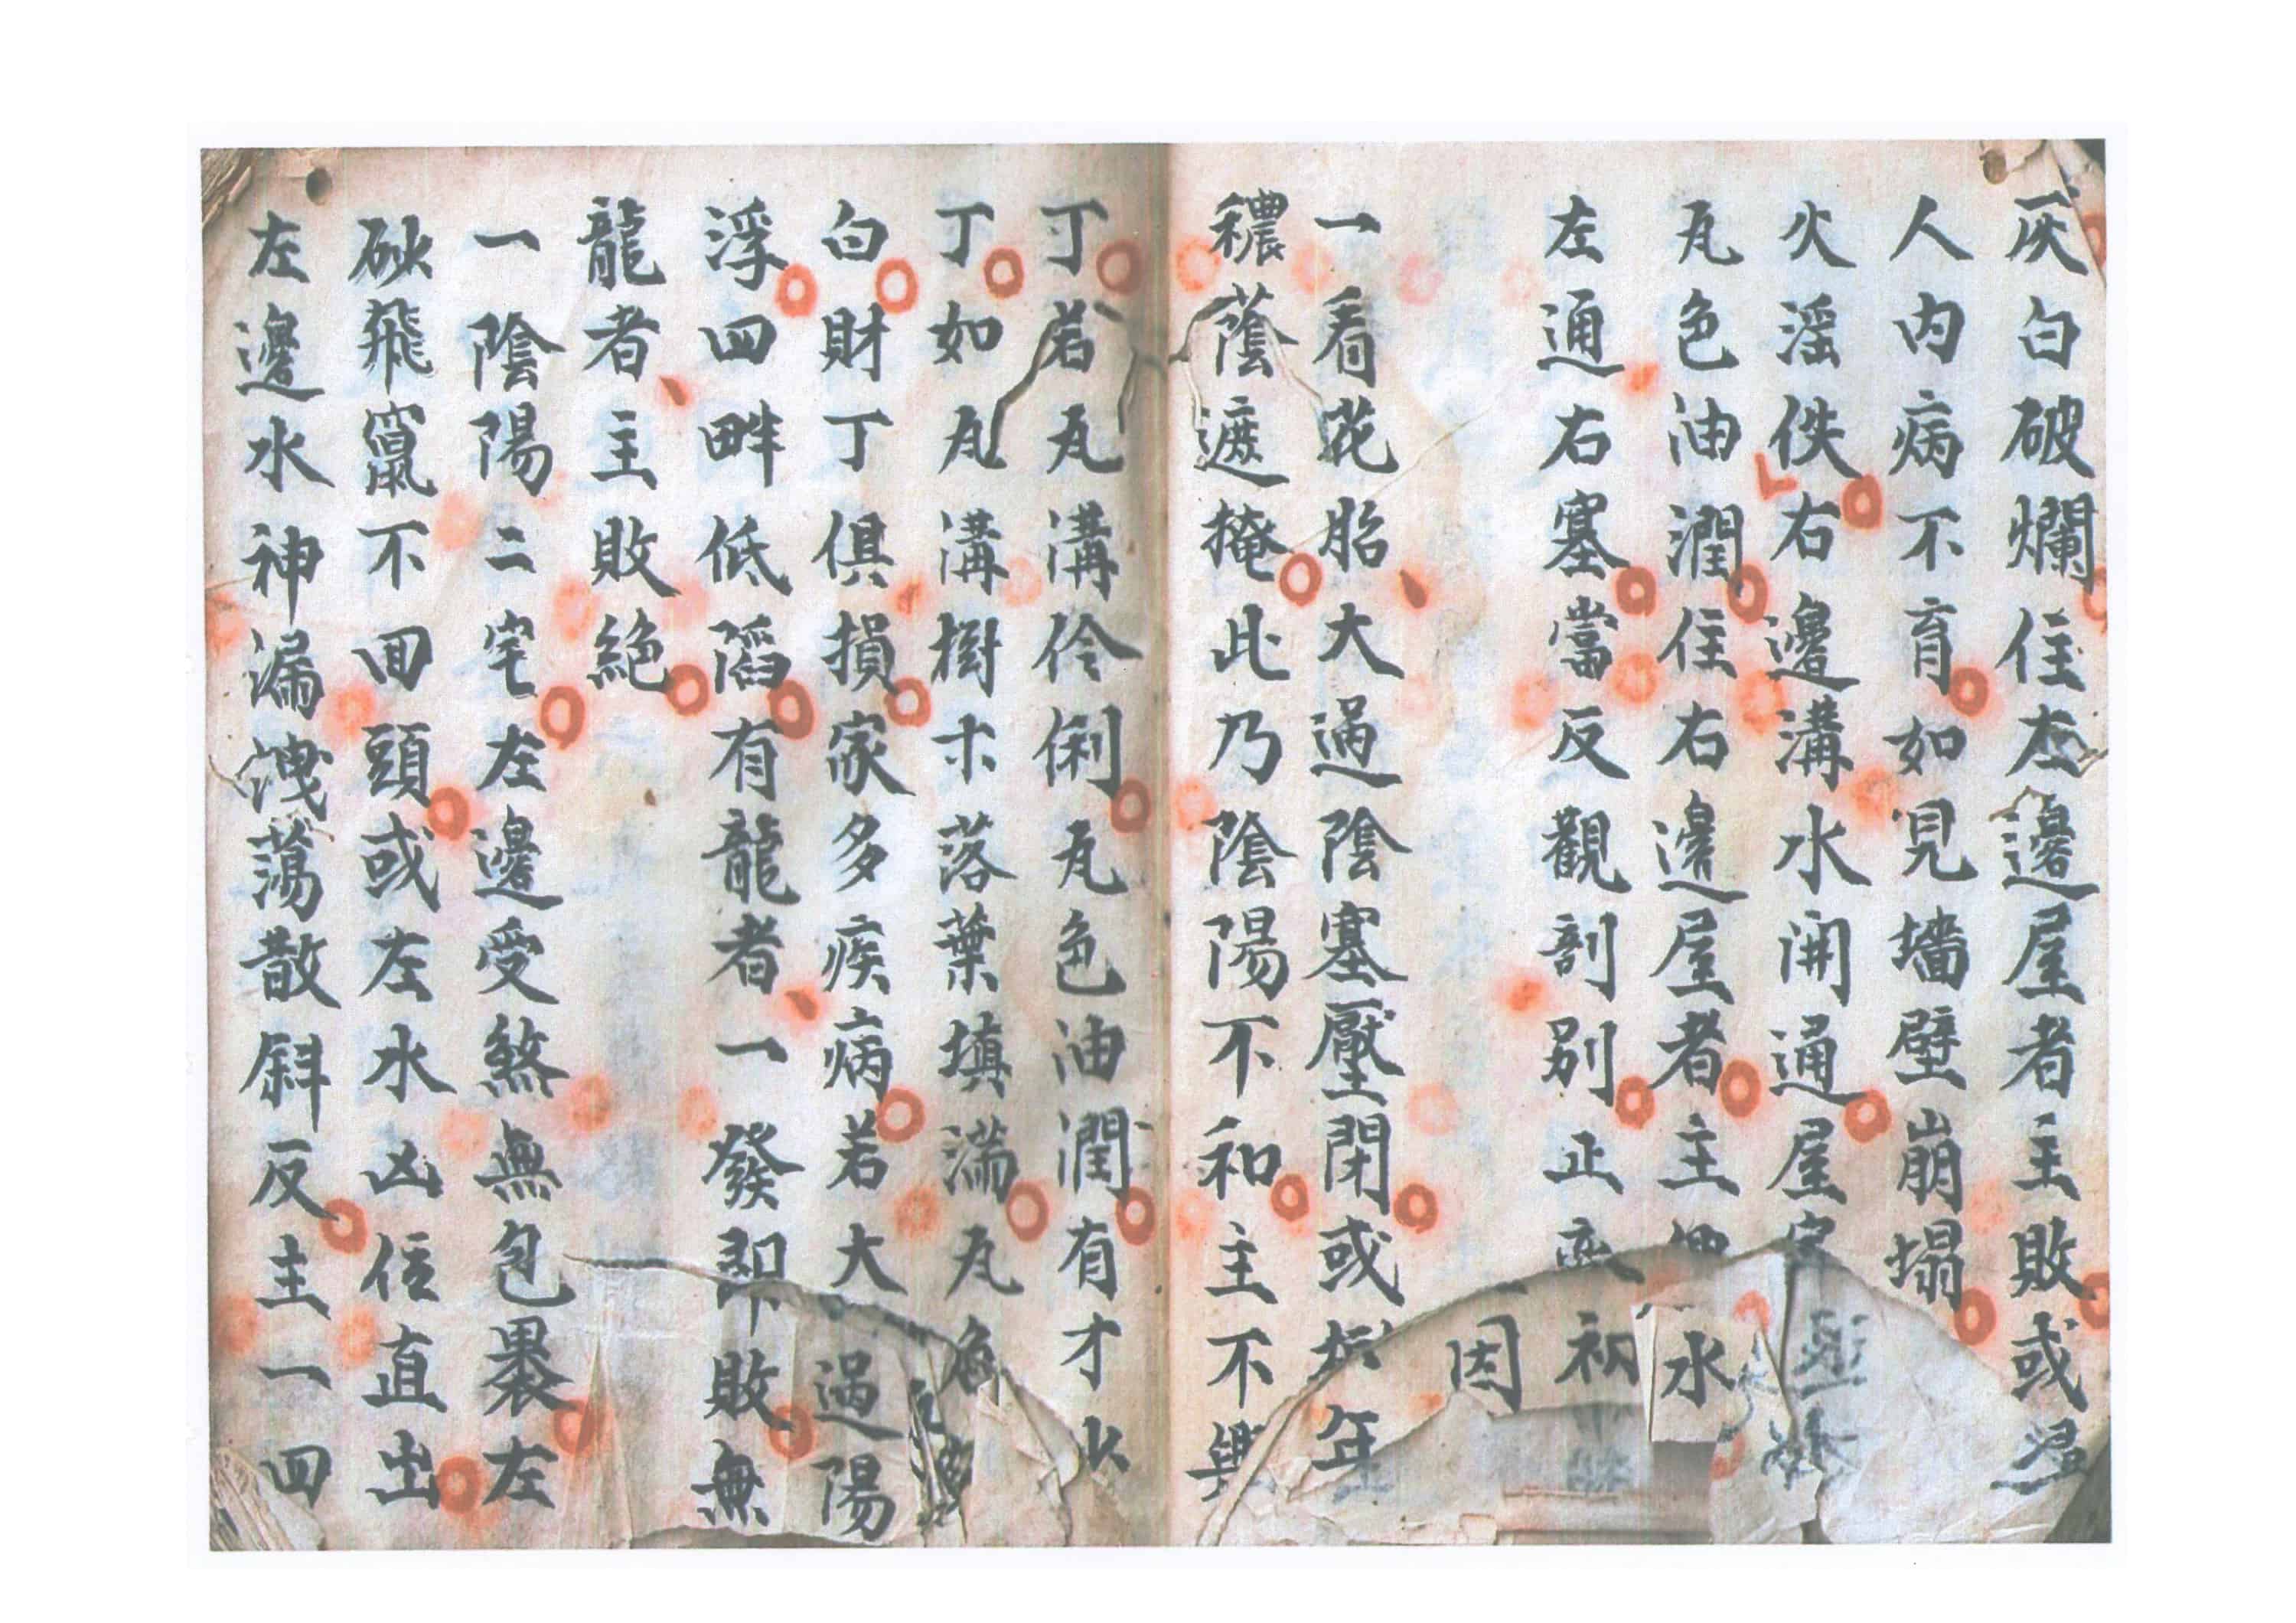 灰白破爛住左邊屋者主敗或
人內病不育如見墻壁崩塌
火淫佚右邊溝水開通屋
瓦色油潤住右邊屋者主
水
左通右塞當反觀剖別正
初
因
一看花胎大過陰塞壓閉或
年
穠蔭遮掩此乃陰陽不和主不興
丁若瓦溝伶俐瓦色油潤有才
丁如瓦溝樹木落葉填滿瓦
白財丁俱損家多疾病若大過陽
浮四畔低陷有龍者一發即敗無
龍者主敗絕
一陰陽二宅左邊受煞無包裹左
砂飛竄不回頭或左水凶住直出
左邊水神漏洩蕩散斜反主一四